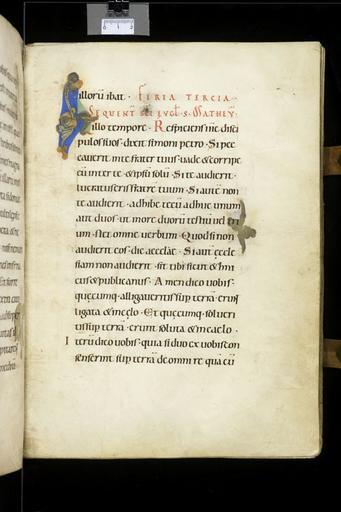 illorū ibat · FERIA TERCIA ·
SEQUENT̄ SC̄I EVGL̄ S · MATHEV̄
Illo tempore · Respiciens ih̄c disci
pulos suos · dixit simoni petro · Si pec
cauerit in te frater tuus · uade & corripe
eū inter te · & ipsū solū · Si te audierit ·
lucratus eris fratrē tuum · Si autē non
te audierit · adhibe tecū adhuc unum
aut duos · ut in ore duorū testiū uel triū
um · stet omne uerbum · Quod si non
audierit eos · dic aecclę · Si aut̄ ęccle
siam non audierit · sit tibi sicut & hni
cus & publicanus · Amen dico uobis ·
quęcumq; alligaueritis sup̄ terrā · erūt
ligata & in cęlo · Et quęcumq; solueri
tis sup̄ terrā · erunt soluta & in caelo ·
Iterū dico uobis · quia si duo ex uobis con
senserint sup̄ terrā de omni re quācū